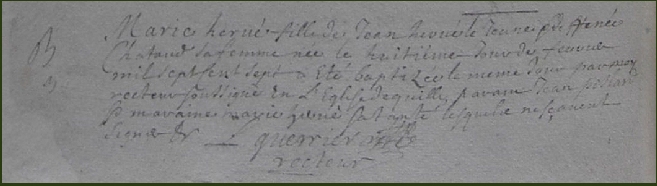 B
Marie hervé fille de Jean hervé le Jeune et de
Chataud sa femme née le huitième Jour de
mil sept sent sept a été baptizee le meme Jour par moy
recteur soussigné En L'Eglise de parain Jean
& maraine marie hervé sa tante lesquels ne scavent
signer &
guerrier
recteur